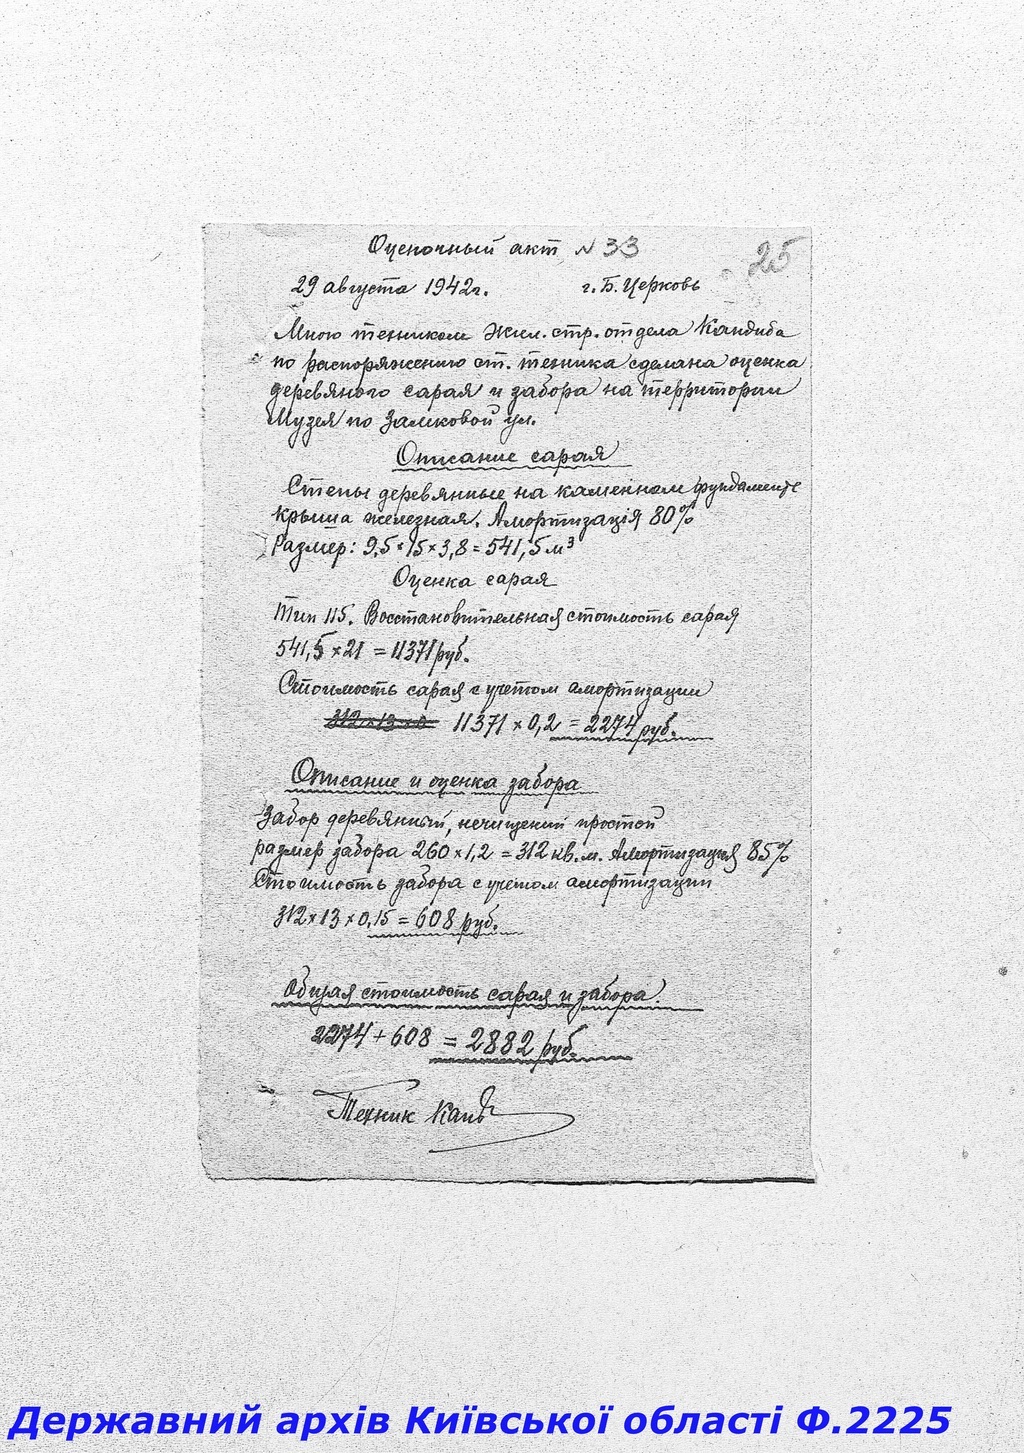 Оценочный акт N 33
25
29 августа 1942г. г. Б. Церковь
Мною техником Жил. стр. отдела Кандиба
по распоряжению ст. техника сделана оценка
деревяного сарая и забора на территории
Музея по Замковой ул.
Описание сарая
Стены деревянные на каменном фундаменте
крыша железная. Амортизація 80%
Размер: 9,5 × 15 × 3,8 = 541,5 м³
Оценка сарая
Тип 115. Восстановительная стоимость сарая
541,5 × 21 = 11371 руб.
Стоимость сарая с учетом амортизации
312 × 13 × 0 11371 × 0,2 = 2274 руб.
Описание и оценка забора
Забор деревянный, нечищений простой
размер забора 260 × 1,2 = 312 кв. м. Амортизация 85%
Стоимость забора с учетом амортизации
312 × 13 × 0,15 = 608 руб.
Общая стоимость сарая и забора.
2274 + 608 = 2882 руб.
Техник
Державний архів Київської області Ф.2225